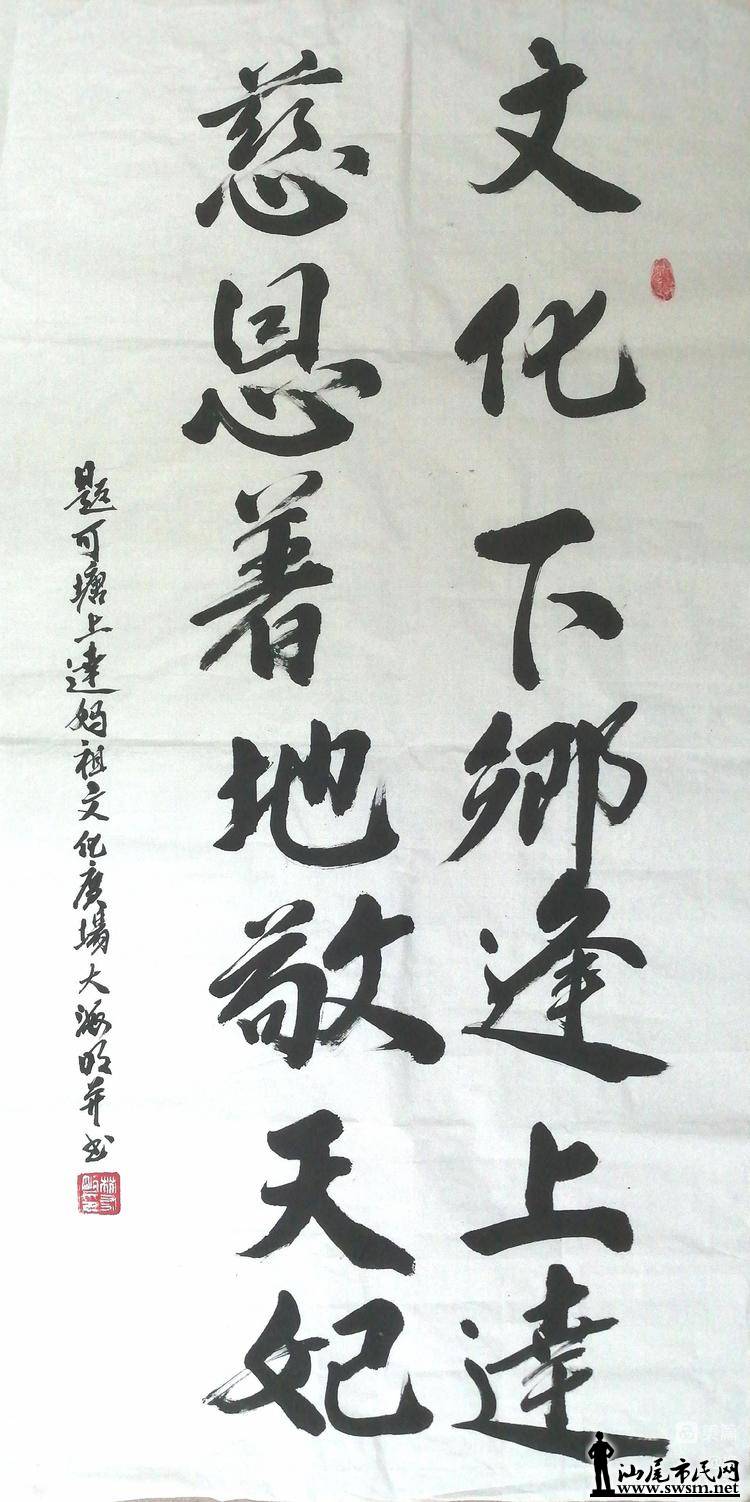 文化下鄉逢上達
慈恩著地敬天妃
題可塘上達妈祖文化廣場大海明并书
美篇
汕尾市民网
www.swsm.net